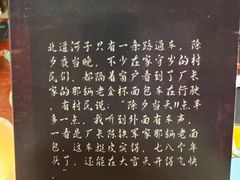 北道河子只有一条路通车，除
夕夜当晚，不少在家守岁的村
民们，都隔着窗户看到了厂长
家的那辆老金杯面包车在行驶
，有村民说：“除夕当天11点半
多一点，我听到外面有车声，
一看是厂长陈铁军家那辆老面
包，这车挺皮实得，七八个年
头了，还能在大雪天开得飞快
。”